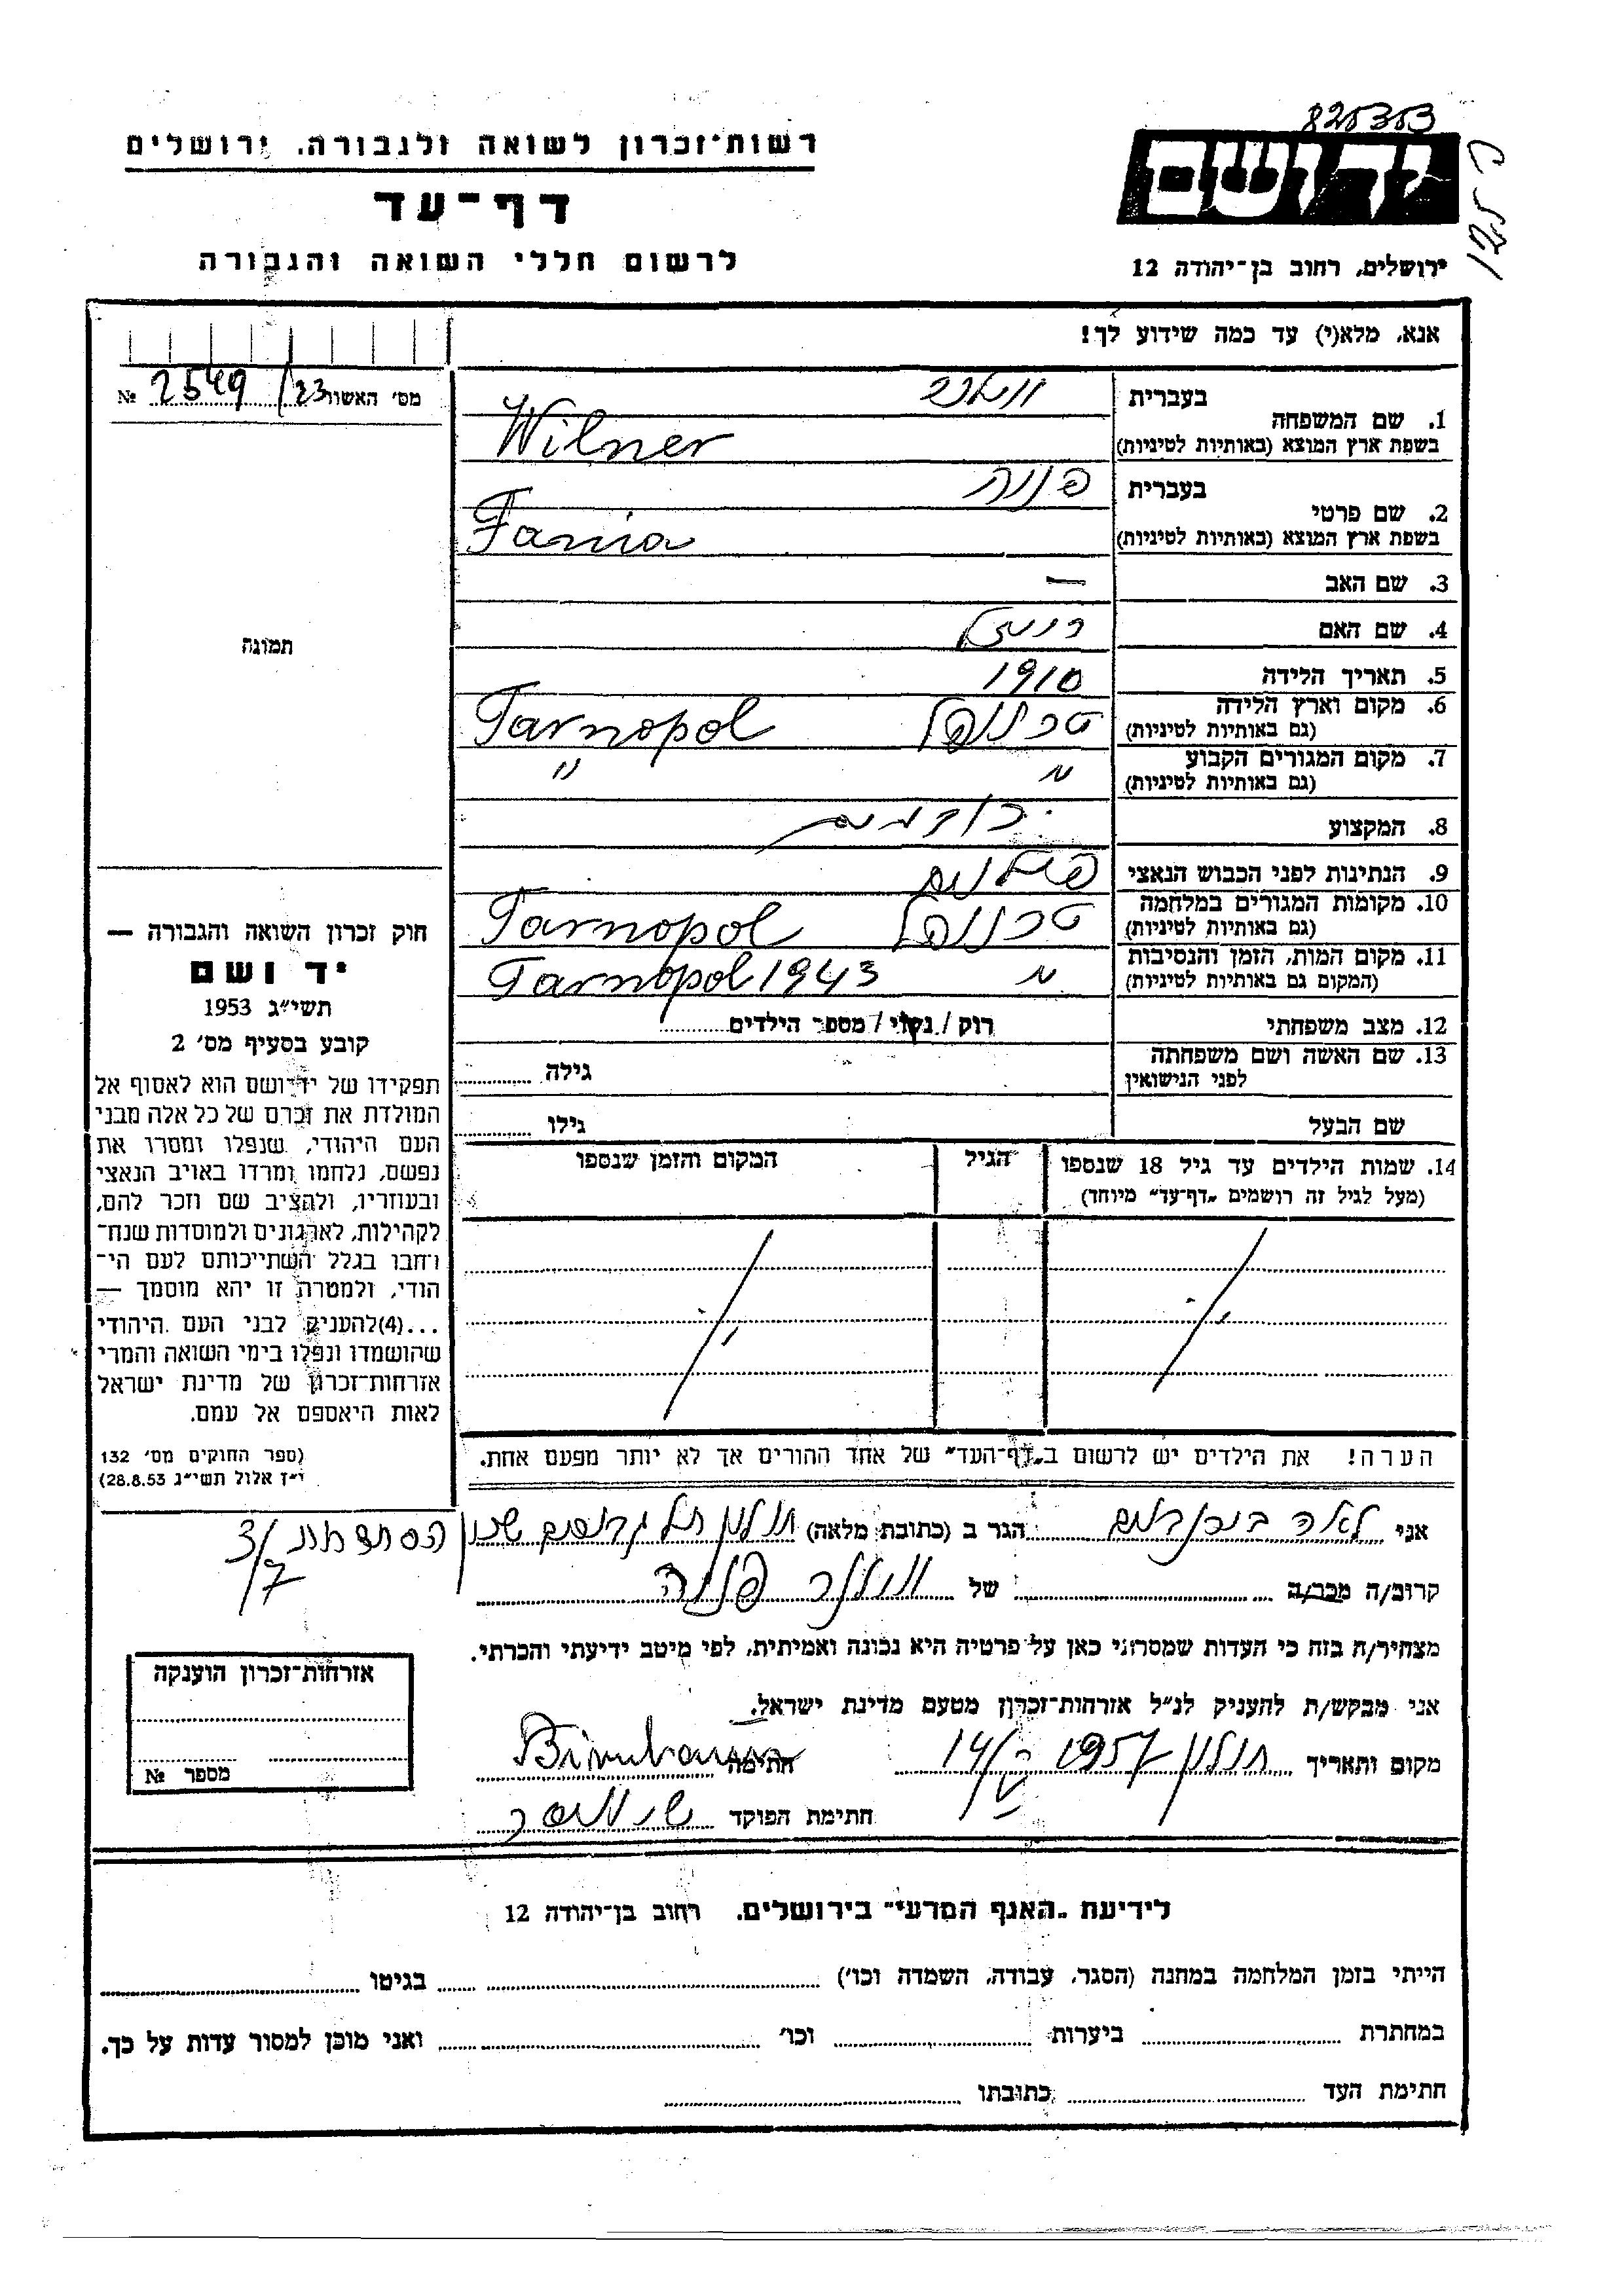 825353
125 כ
רשות־זכרון לשואה ולגבורה, ירושלים
יד ושם
דף־עד
לרשום חללי השואה והגבורה
ירושלים, רחוב בן־יהודה 12
אנא, מלא(י) עד כמה שידוע לך!
מס׳ האשור 23/ 2549 №
תמונה
1. שם המשפחה בעברית
בשפת ארץ המוצא (באותיות לטיניות) Wilner
2. שם פרטי בעברית פניה
בשפת ארץ המוצא (באותיות לטיניות) Fania
3. שם האב —
4. שם האם רייזל
5. תאריך הלידה 1910
6. מקום וארץ הלידה טרנופל Tarnopol
(גם באותיות לטיניות)
7. מקום המגורים הקבוע " "
(גם באותיות לטיניות)
8. המקצוע
9. הנתינות לפני הכבוש הנאצי
10. מקומות המגורים במלחמה טרנופל Tarnopol
(גם באותיות לטיניות)
11. מקום המות, הזמן והנסיבות " Tarnopol 1943
(המקום גם באותיות לטיניות)
12. מצב משפחתי רוק / נשוי / מספר הילדים
13. שם האשה ושם משפחתה גילה
לפני הנישואין
שם הבעל גילו
14. שמות הילדים עד גיל 18 שנספו הגיל המקום והזמן שנספו
(מעל לגיל זה רושמים „דף־עד״ מיוחד)
הערה! את הילדים יש לרשום ב„דף־העד״ של אחד ההורים אך לא יותר מפעם אחת.
חוק זכרון השואה והגבורה —
יד ושם
תשי״ג 1953
קובע בסעיף מס׳ 2
תפקידו של יד־ושם הוא לאסוף אל
המולדת את זכרם של כל אלה מבני
העם היהודי, שנפלו ומסרו את
נפשם, נלחמו ומרדו באויב הנאצי
ובעוזריו, ולהציב שם וזכר להם,
לקהילות, לארגונים ולמוסדות שנח־
רחבו בגלל השתייכותם לעם הי־
הודי, ולמטרה זו יהא מוסמך —
...(4)להעניק לבני העם היהודי
שהושמדו ונפלו בימי השואה והמרי
אזרחות־זכרון של מדינת ישראל
לאות היאספם אל עמם.
(ספר החוקים מס׳ 132
י״ז אלול תשי״ג 28.8.53)
אני לאה בירנבוים הגר ב (כתובת מלאה) חולון תל גבורים שכון הסתדרות 3/7
קרוב/ה מכר/ה של וילנר פניה
מצהיר/ה בזה כי העדות שמסרתי כאן על פרטיה היא נכונה ואמיתית, לפי מיטב ידיעתי והכרתי.
אני מבקש/ת להעניק לנ״ל אזרחות־זכרון מטעם מדינת ישראל.
מקום ותאריך חולון 1957 חתימה Birnbaum
חתימת הפוקד
אזרחות־זכרון הוענקה
מספר №
לידיעת „האגף המדעי״ בירושלים, רחוב בן־יהודה 12
הייתי בזמן המלחמה במחנה (הסגר, עבודה, השמדה וכו׳) בגיטו
במחתרת ביערות וכו׳ ואני מוכן למסור עדות על כך.
חתימת העד כתובתו